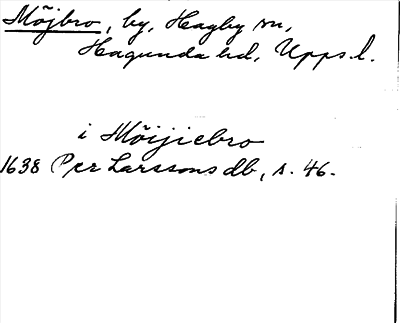 Möjbro, by, Hagby sn,
Hagunda hd, Upps. l.
i Möijiebro
1638 Per Larssons db, s. 46.